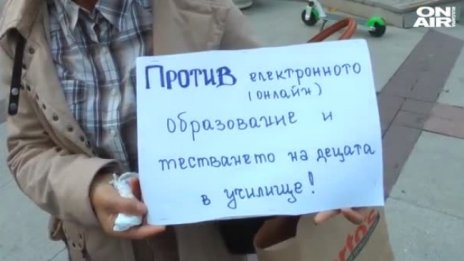 ON
AIR
ПРОТИВ електронното
(онлайн)
образование и
тестването на децата
в училище!